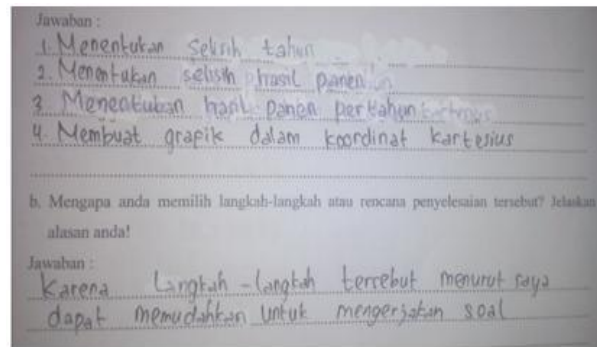 Jawaban :
1. Menentukan selisih tahun
2. Menentukan selisih hasil panen
3 Menentukan hasil panen pertahun
4. Membuat grafik dalam koordinat kartesius
b. Mengapa anda memilih langkah-langkah atau rencana penyelesaian tersebut? Jelaskan
alasan anda!
Jawaban :
Karena langkah-langkah tersebut menurut saya
dapat memudahkan untuk mengerjakan soal